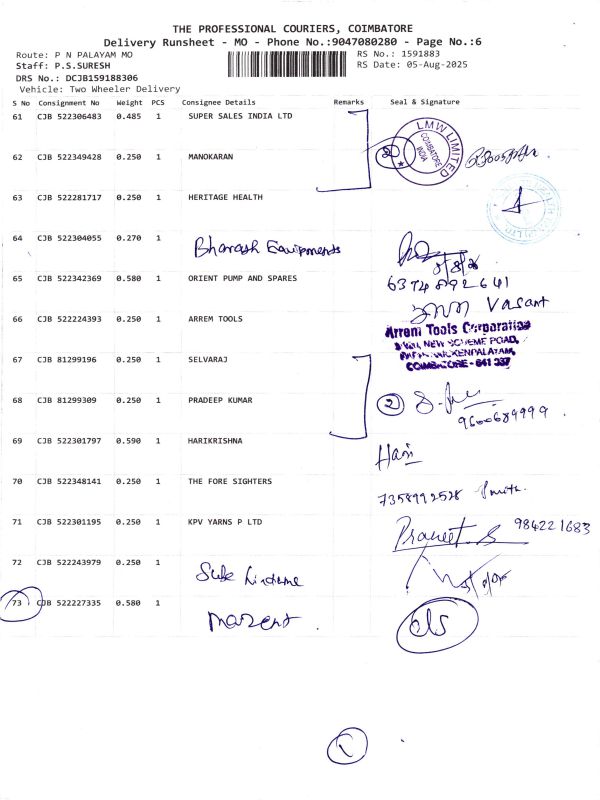 THE PROFESSIONAL COURIERS, COIMBATORE
Delivery Runsheet - MO - Phone No.:9047080280 - Page No.:6
Route: P N PALAYAM MO
RS No.: 1591883
Staff: P.S.SURESH
RS Date: 05-Aug-2025
DRS No.: DCJB159188306
Vehicle: Two Wheeler Delivery
S No Consignment No Weight PCS Consignee Details Remarks Seal & Signature
61 CJB 522306483 0.485 1 SUPER SALES INDIA LTD
LMW LIMITED
COIMBATORE
INDIA
2
62 CJB 522349428 0.250 1 MANOKARAN
63 CJB 522281717 0.250 1 HERITAGE HEALTH
64 CJB 522304055 0.270 1 Bharash Equipments
65 CJB 522342369 0.580 1 ORIENT PUMP AND SPARES
6374892641
Vasant
66 CJB 522224393 0.250 1 ARREM TOOLS
Arrem Tools Corporation
COIMBATORE - 641 037
67 CJB 81299196 0.250 1 SELVARAJ
68 CJB 81299309 0.250 1 PRADEEP KUMAR
2
9600689999.
69 CJB 522301797 0.590 1 HARIKRISHNA
Hari
70 CJB 522348141 0.250 1 THE FORE SIGHTERS
7358992528
71 CJB 522301195 0.250 1 KPV YARNS P LTD
Praneet.S 984221683
72 CJB 522243979 0.250 1
73 CJB 522227335 0.580 1